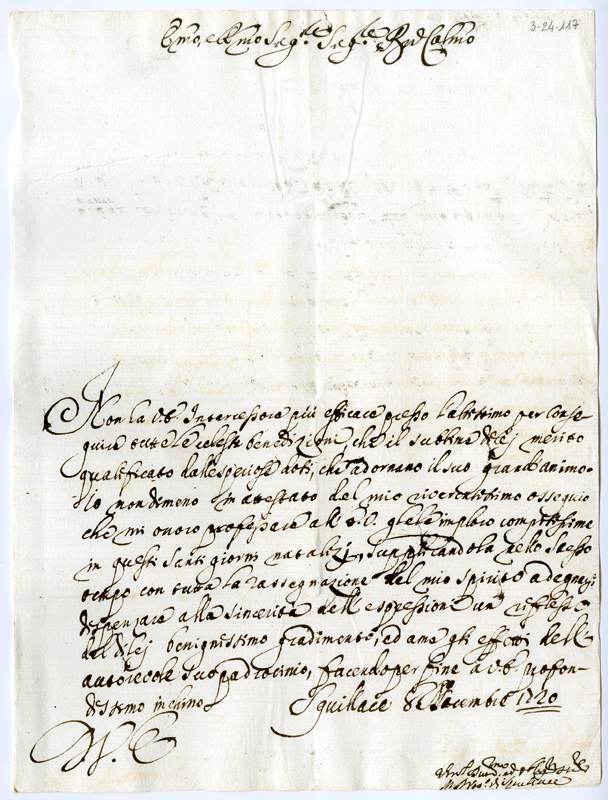 3-24-117
Emo, e Rmo Sig.re Sig.re Pron Colmo
Non ha V.E. Intercessore più efficace presso l'altissimo per conse-
guire tutte le celesti benedizioni, che il sublime di lej merito
qualificato dall'especiose doti, che adornano il suo grand'animo.
Io nondimeno in attestato del mio riverentissimo ossequio
che mi onoro professare all'V.E. gliele imploro compitissime
in questi santi giorni natalizj, supplicandola nello stesso
tempo con tutta la rassegnazione del mio spirito a degnarsi
dispensare alla sincerità dell'espressioni un riflesso
del di lej benignissimo gradimento, ed a me gli effetti dell'
autorevole suo padrocinio, facendo per fine a V.E. profon-
dissimo inchino
Squillace 8 Decembre 1720
D. V. E.
di Squillace